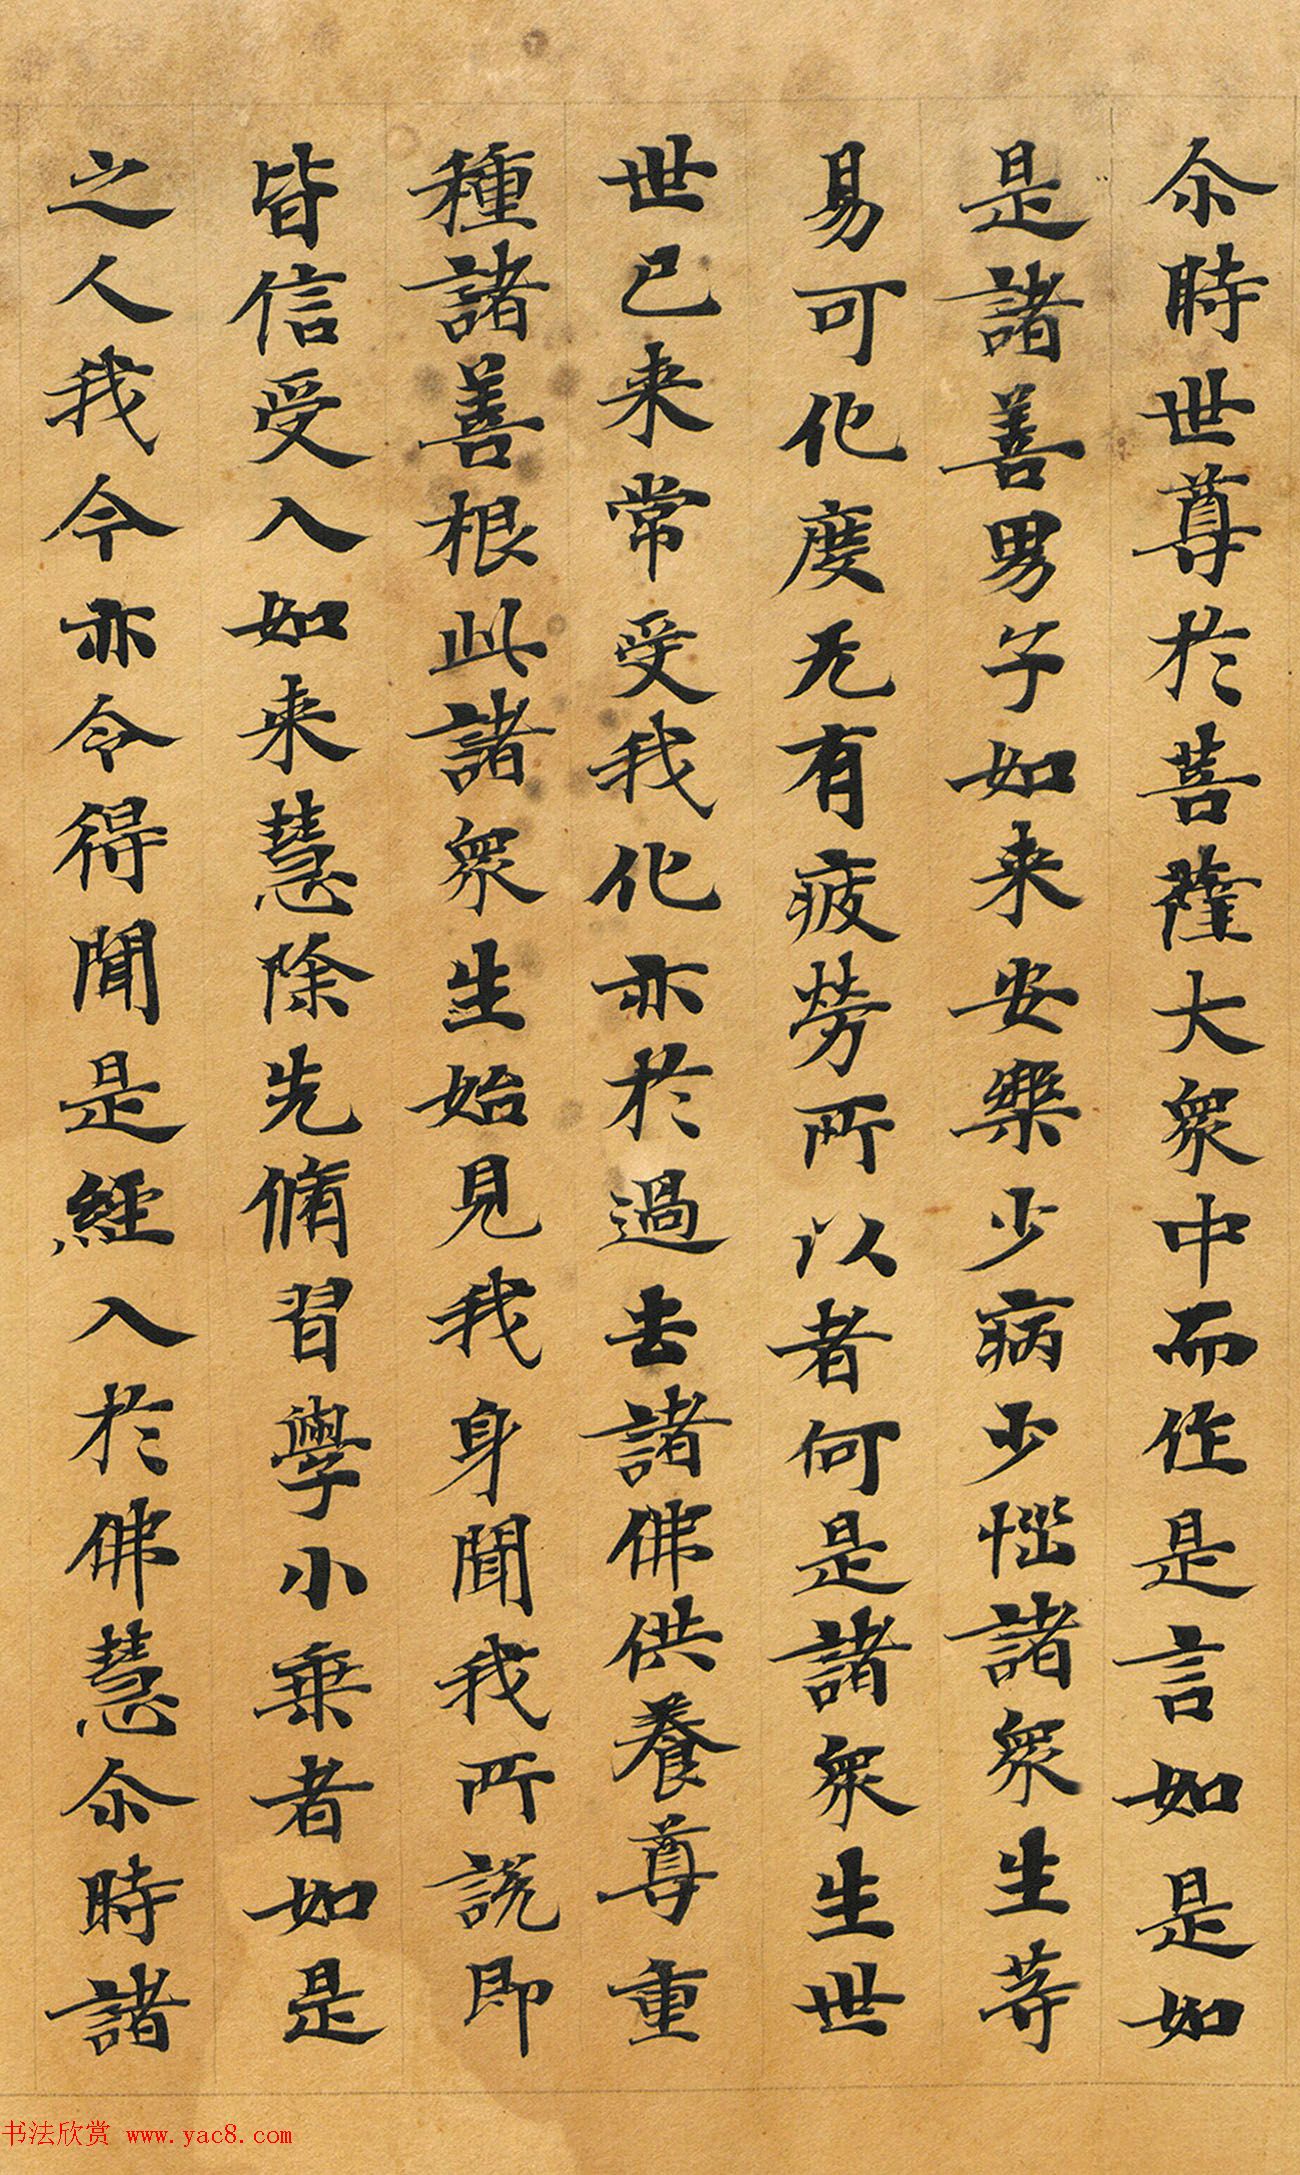 尒時世尊於菩薩大衆中而作是言如是如
是諸善男子如来安樂少病少惱諸衆生等
易可化度无有疲勞所以者何是諸衆生世
世已来常受我化亦於過去諸佛供養尊重
種諸善根此諸衆生始見我身聞我所説即
皆信受入如来慧除先脩習學小乗者如是
之人我今亦令得聞是經入於佛慧尒時諸
书法欣赏 www.yac8.com